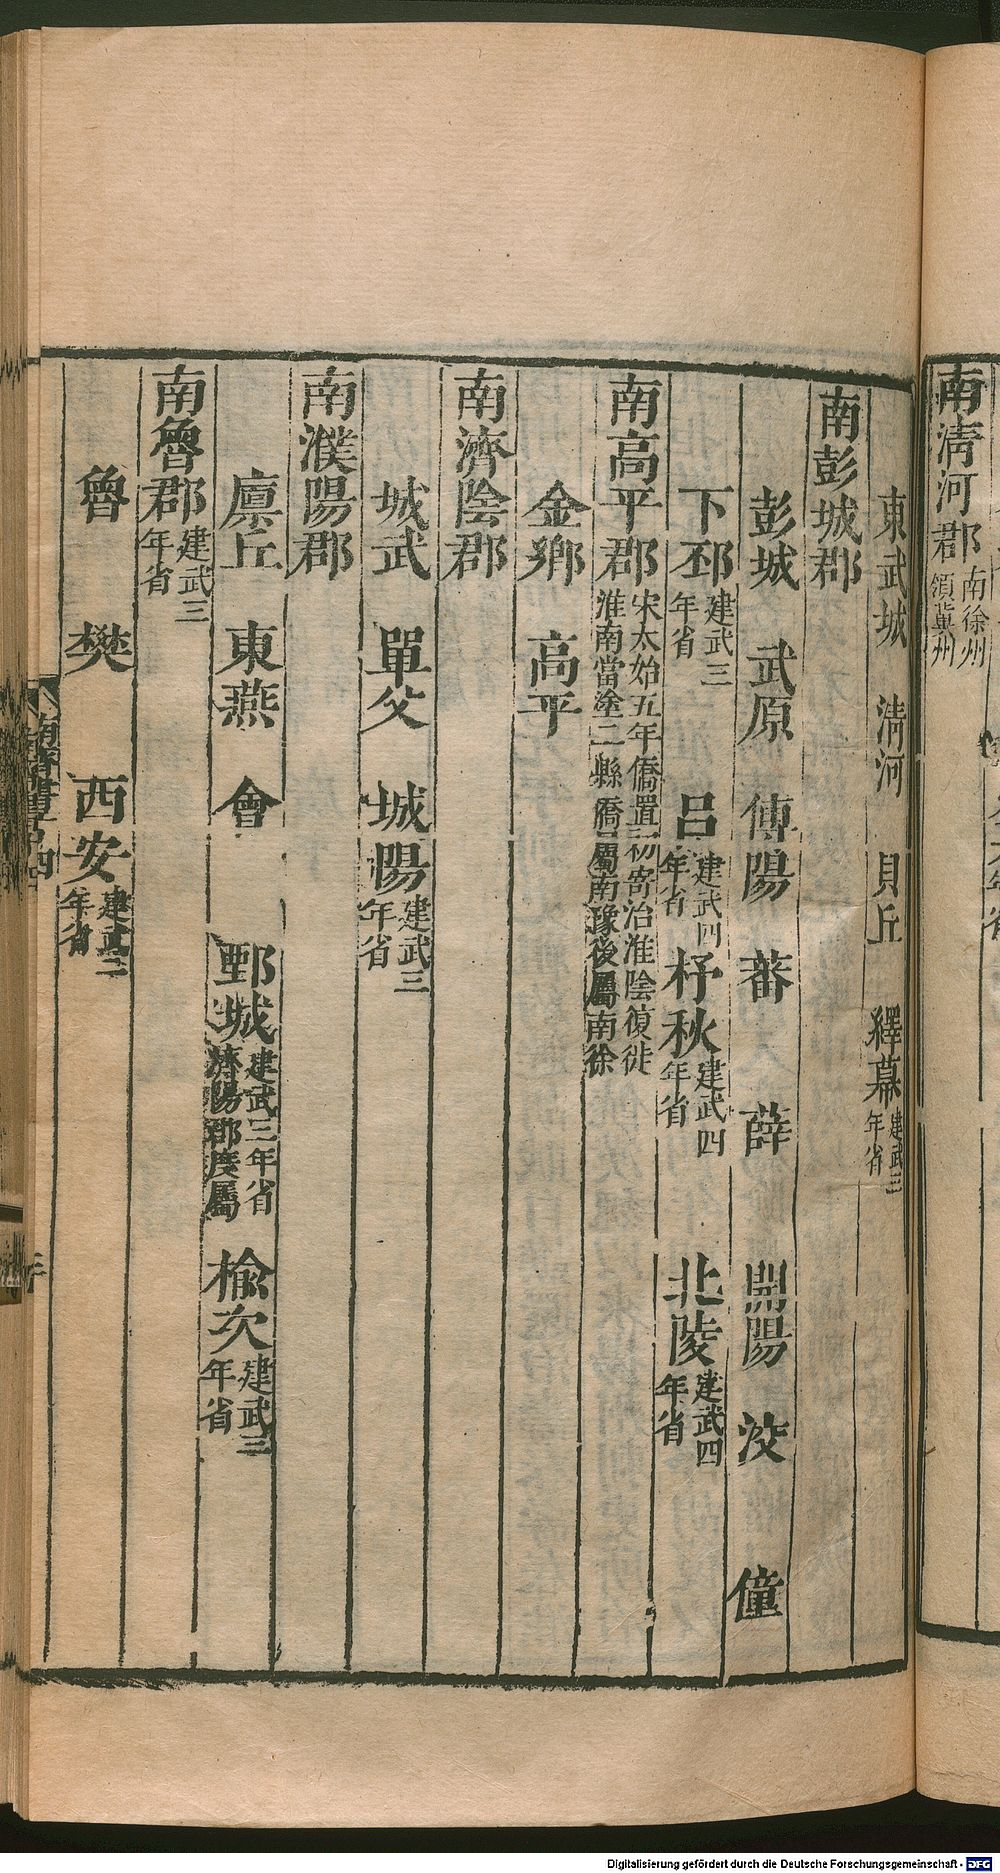 南淸河郡南徐州領冀州
東武城 淸河 貝丘 繹幕建武三年省
南彭城郡
彭城 武原 傅陽 蕃 薛 開陽 洨 僮
下邳建武三年省 呂建武四年省 杼秋建武四年省 北陵建武四年省
南高平郡宋太始五年僑置初寄治淮陰復徙淮南當塗二縣僑屬南豫後屬南徐
金鄉 高平
南濟陰郡
城武 單父 城陽建武三年省
南濮陽郡
廩丘 東燕 會 鄄城建武三年省濟陽郡度屬 榆次建武三年省
南魯郡建武三年省
魯 樊 西安建武三年省
Digitalisierung gefördert durch die Deutsche Forschungsgemeinschaft - DFG